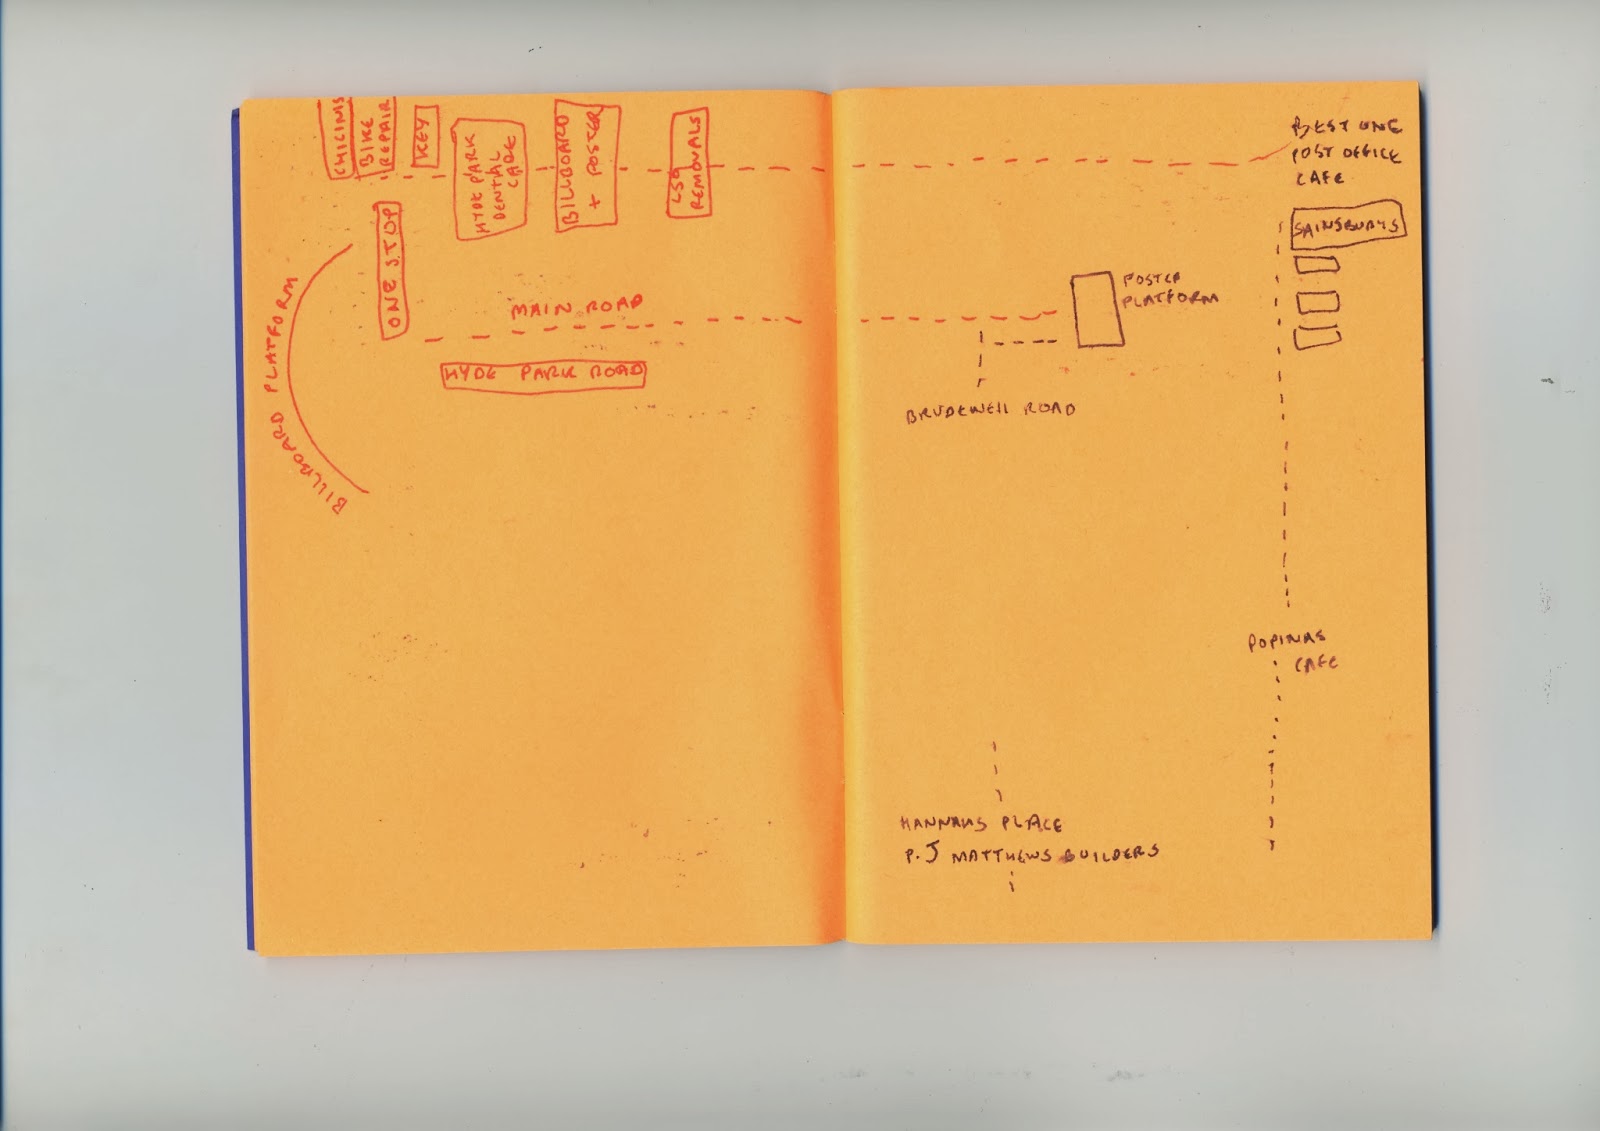 CHICINIS
BIKE
REPAIR
KEY
HYDE PARK
DENTAL
CARE
BILLBOARD
+ POSTER
LS9
REMOVALS
ONE STOP
BILLBOARD PLATFORM
MAIN ROAD
HYDE PARK ROAD
BEST ONE
POST OFFICE
CAFE
SAINSBURYS
POSTER
PLATFORM
BRUDEWELL ROAD
POPINAS
CAFE
HANNAHS PLACE
P.J MATTHEWS BUILDERS